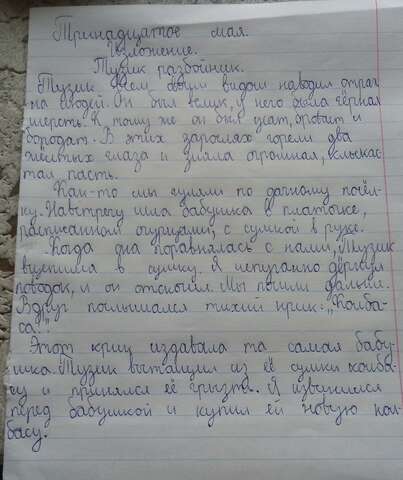 Тринадцатое мая.
Изложение.
Тузик разбойник.
Тузик всем своим видом наводил страх
на людей. Он был велик, у него была чёрная
шерсть. К тому же он был усат, бровает и
бородат. В этих зарослях горели два
жёлтых глаза и зияла огромная, клыкас-
тая пасть.
Как-то мы гуляли по дачному посёл-
ку. Навстречу шла бабушка в платочке,
расписанном огурцами, с сумкой в руке.
Когда она поравнялась с нами, Тузик
вцепился в сумку. Я испуганно дёрнул
поводок, и он отскочил. Мы пошли дальше.
Вдруг послышался тихий крик: „Колба-
са!"
Этот крик издавала та самая бабу-
шка. Тузик вытащил из её сумки колба-
су и принялся её грызть. Я извинился
перед бабушкой и купил ей новую кол-
басу.